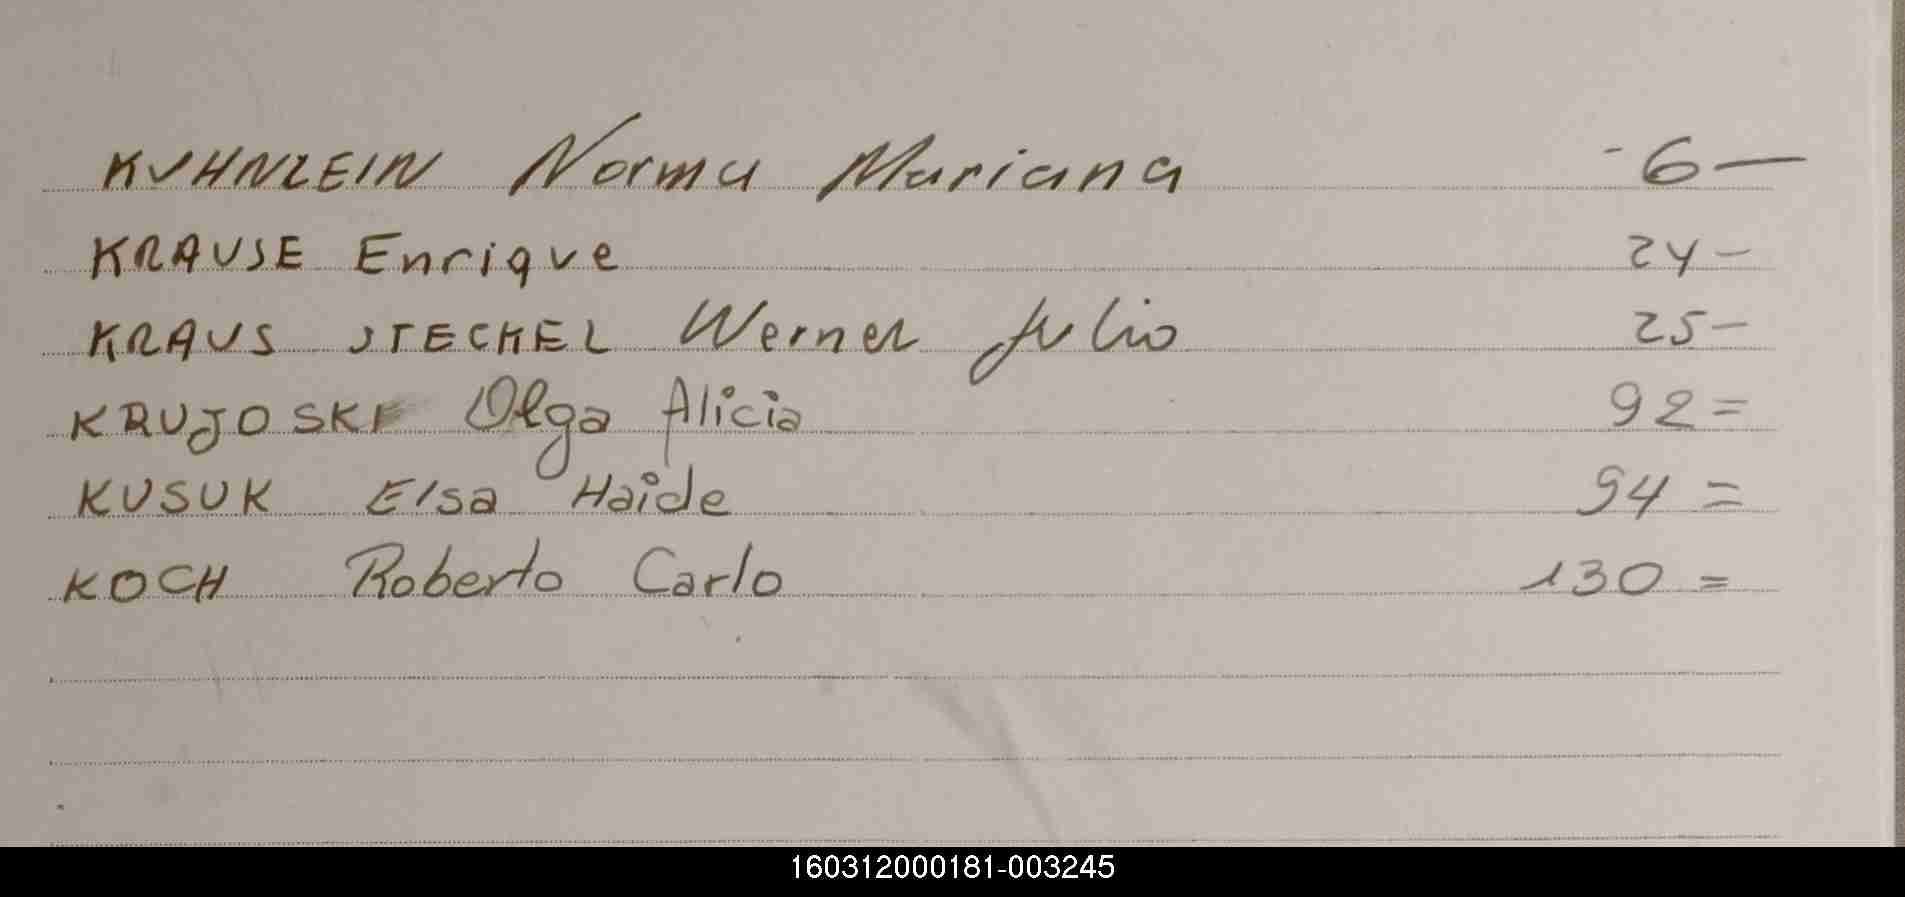 KUHNLEIN Norma Mariana - 6 —
KRAUSE Enrique 24 -
KRAUS STECKEL Werner Julio 25 -
KRUJOSKI Olga Alicia 92 =
KUSUK Elsa Haide 94 =
KOCH Roberto Carlo 130 =
160312000181-003245